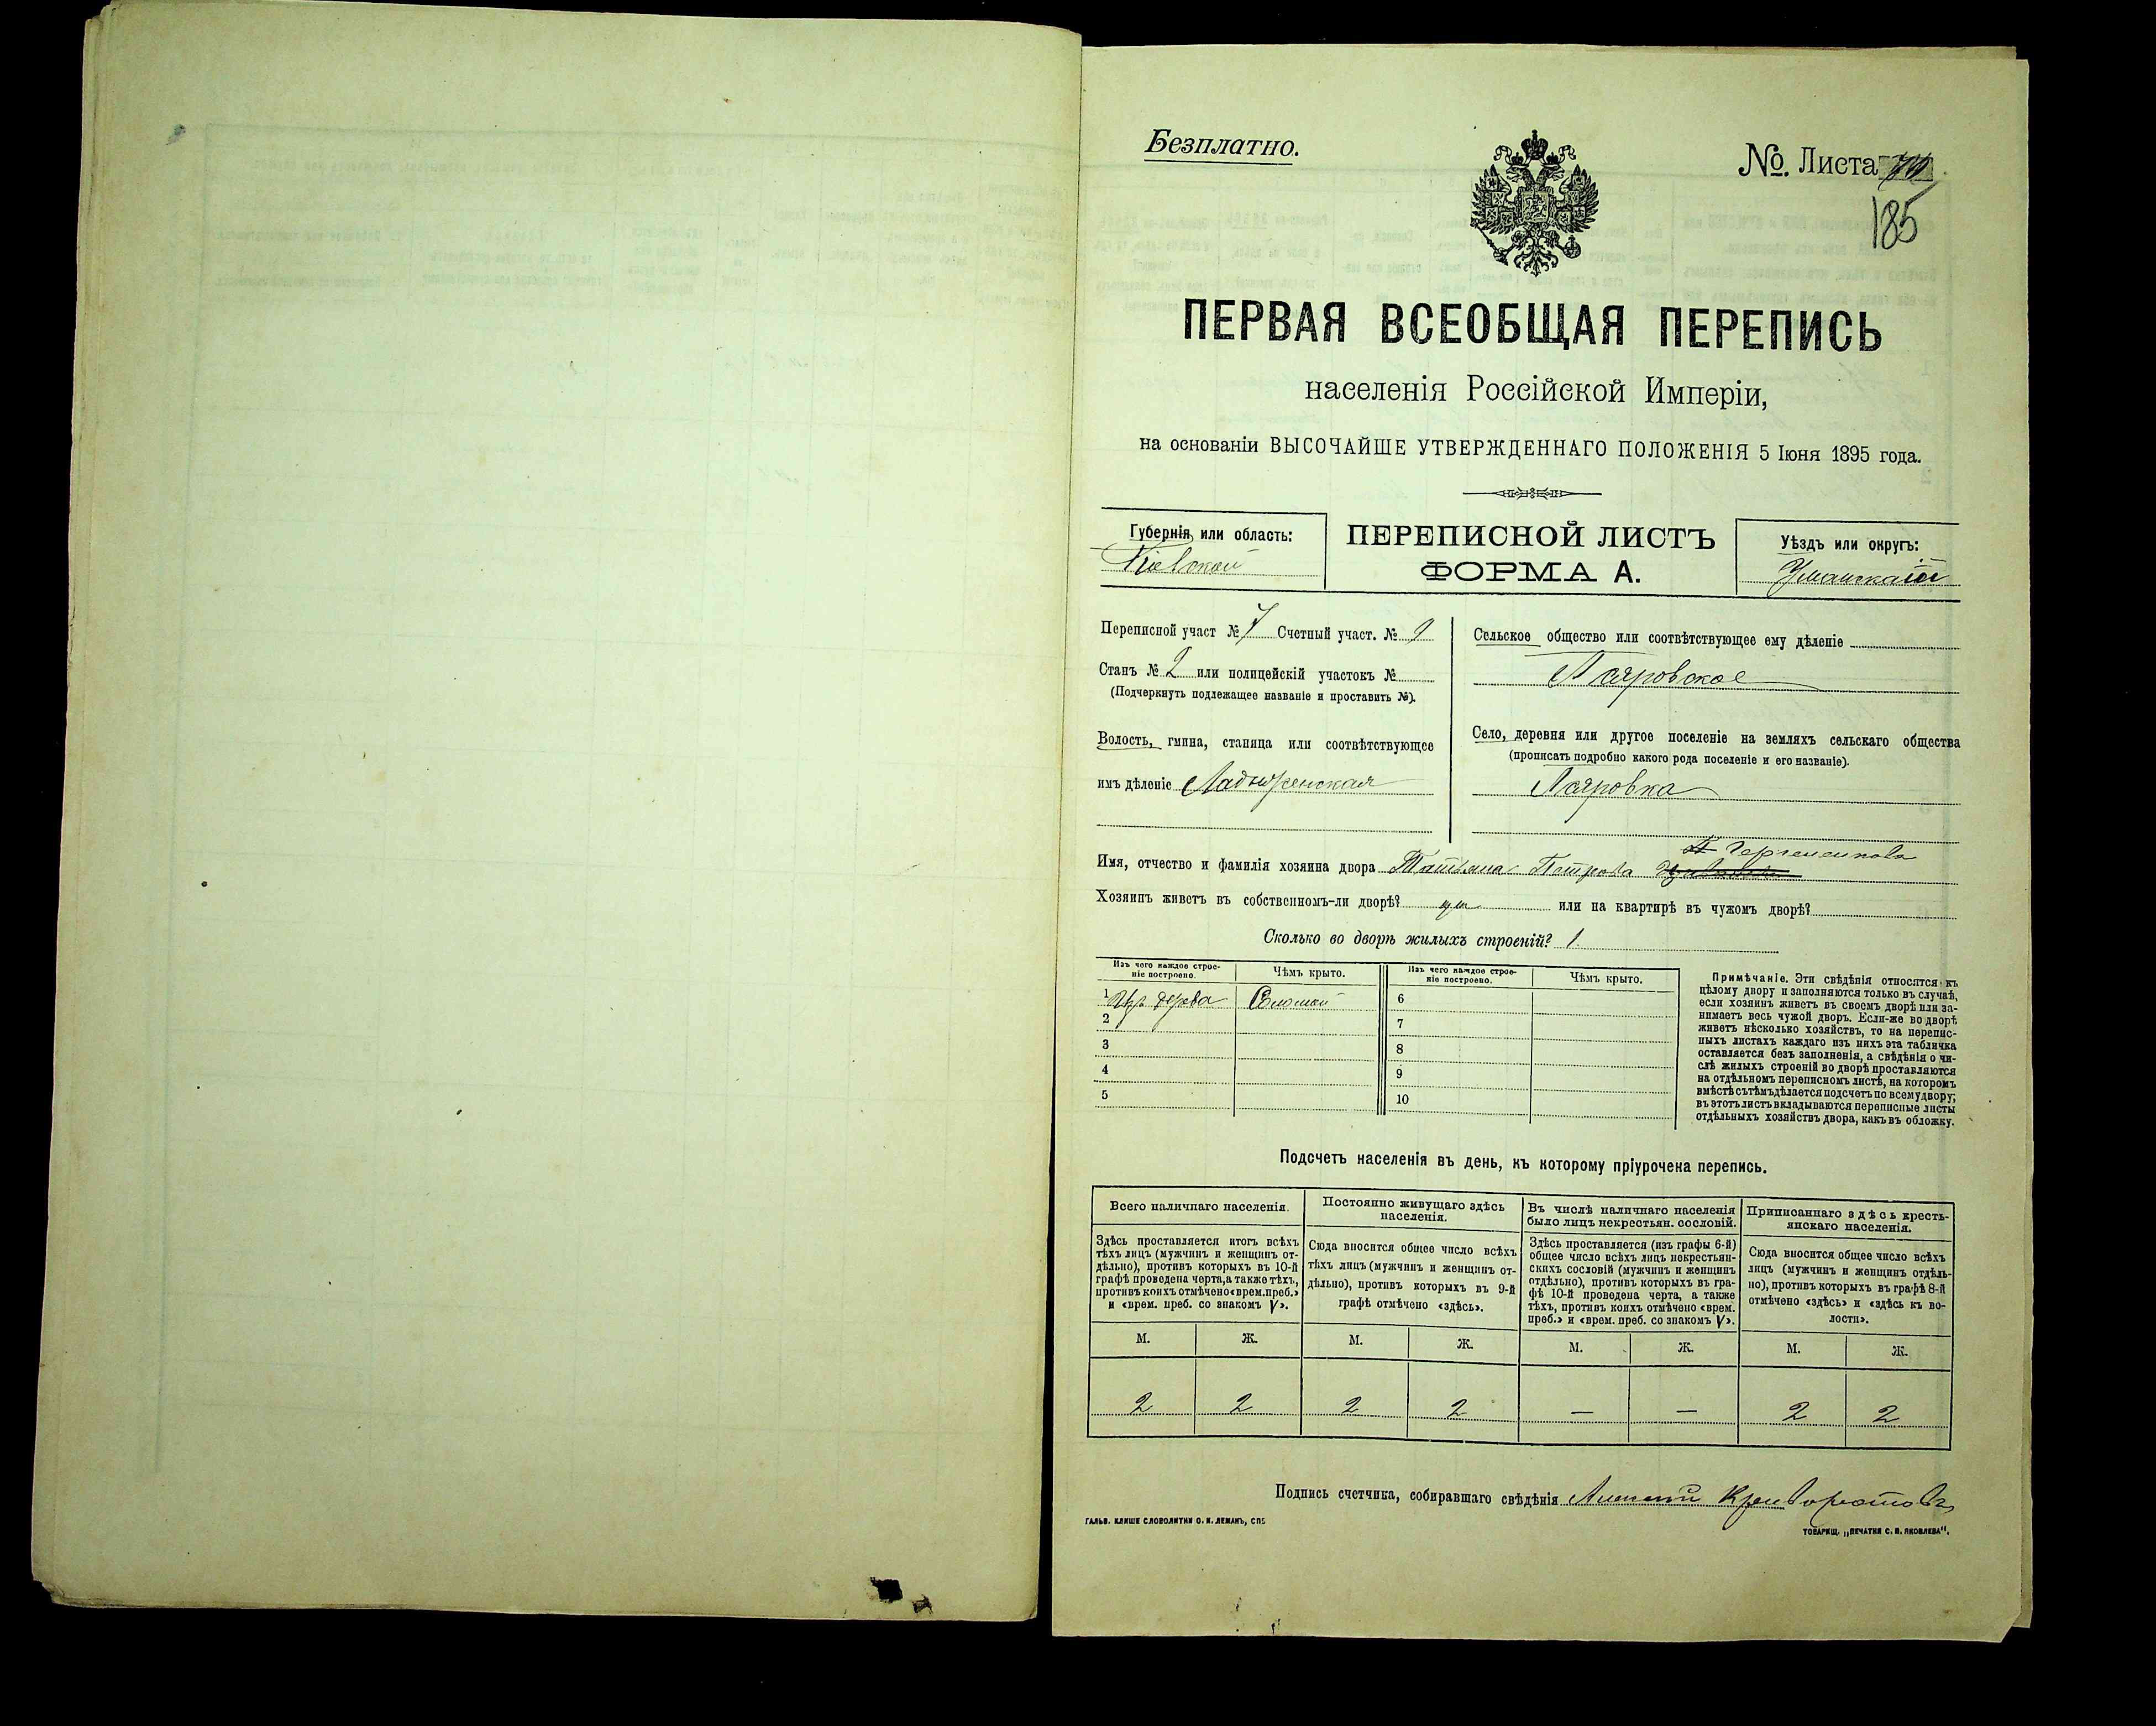 Безплатно.
№ Листа
185
ПЕРВАЯ ВСЕОБЩАЯ ПЕРЕПИСЬ
населенія Россійской Имперіи,
на основаніи ВЫСОЧАЙШЕ УТВЕРЖДЕННАГО ПОЛОЖЕНІЯ 5 Іюня 1895 года.
Губернія или область:
Кіевской
ПЕРЕПИСНОЙ ЛИСТЪ
ФОРМА А.
Уѣздъ или округъ:
Уманскій
Переписной участ № 7 Счетный участ. № 9
Станъ № 2 или полицейскій участокъ №
(Подчеркнуть подлежащее названіе и проставить №).
Волость, гмина, станица или соотвѣтствующее
имъ дѣленіе Ладыженская
Сельское общество или соотвѣтствующее ему дѣленіе
Село, деревня или другое поселеніе на земляхъ сельскаго общества
(прописать подробно какого рода поселеніе и его названіе).
Имя, отчество и фамилія хозяина двора Татьяна Петрова
Хозяинъ живетъ въ собственномъ-ли дворѣ? или на квартирѣ въ чужомъ дворѣ?
Сколько во дворѣ жилыхъ строеній? 1
Изъ чего каждое строе-
ніе построено.
Чѣмъ крыто.
Изъ чего каждое строе-
ніе построено.
Чѣмъ крыто.
1 Изъ дерева Соломой 6
2 7
3 8
4 9
5 10
Примѣчаніе. Эти свѣдѣнія относятся къ
цѣлому двору и заполняются только въ случаѣ,
если хозяинъ живетъ въ своемъ дворѣ или за-
нимаетъ весь чужой дворъ. Если-же во дворѣ
живетъ нѣсколько хозяйствъ, то на перепис-
ныхъ листахъ каждаго изъ нихъ эта табличка
оставляется безъ заполненія, а свѣдѣнія о чи-
слѣ жилыхъ строеній во дворѣ проставляются
на отдѣльномъ переписномъ листѣ, на которомъ
вмѣстѣ съ тѣмъ дѣлается подсчетъ по всему двору;
въ этотъ листъ вкладываются переписные листы
отдѣльныхъ хозяйствъ двора, какъ въ обложку.
Подсчетъ населенія въ день, къ которому пріурочена перепись.
Всего наличнаго населенія.
Здѣсь проставляется итогъ всѣхъ
тѣхъ лицъ (мужчинъ и женщинъ от-
дѣльно), противъ которыхъ въ 10-й
графѣ проведена черта, а также тѣхъ,
противъ коихъ отмѣчено «врем. преб.»
и «врем. преб. со знакомъ V».
Постоянно живущаго здѣсь
населенія.
Сюда вносится общее число всѣхъ
тѣхъ лицъ (мужчинъ и женщинъ от-
дѣльно), противъ которыхъ въ 9-й
графѣ отмѣчено «здѣсь».
Въ числѣ наличнаго населенія
было лицъ некрестьян. сословій.
Здѣсь проставляется (изъ графы 6-й)
общее число всѣхъ лицъ некрестьян-
скихъ сословій (мужчинъ и женщинъ
отдѣльно), противъ которыхъ въ гра-
фѣ 10-й проведена черта, а также
тѣхъ, противъ коихъ отмѣчено «врем.
преб.» и «врем. преб. со знакомъ V».
Приписаннаго здѣсь кресть-
янскаго населенія.
Сюда вносится общее число всѣхъ
лицъ (мужчинъ и женщинъ отдѣль-
но), противъ которыхъ въ графѣ 8-й
отмѣчено «здѣсь» и «здѣсь къ во-
лости».
М. Ж. М. Ж. М. Ж. М. Ж.
2 2 2 2 — — 2 2
Подпись счетчика, собиравшаго свѣдѣнія Алексѣй
ГАЛЬВ. КЛИШЕ СЛОВОЛИТНИ О. И. ЛЕМАНЪ, СПБ
ТОВАРИЩ. „ПЕЧАТНЯ С. П. ЯКОВЛЕВА".